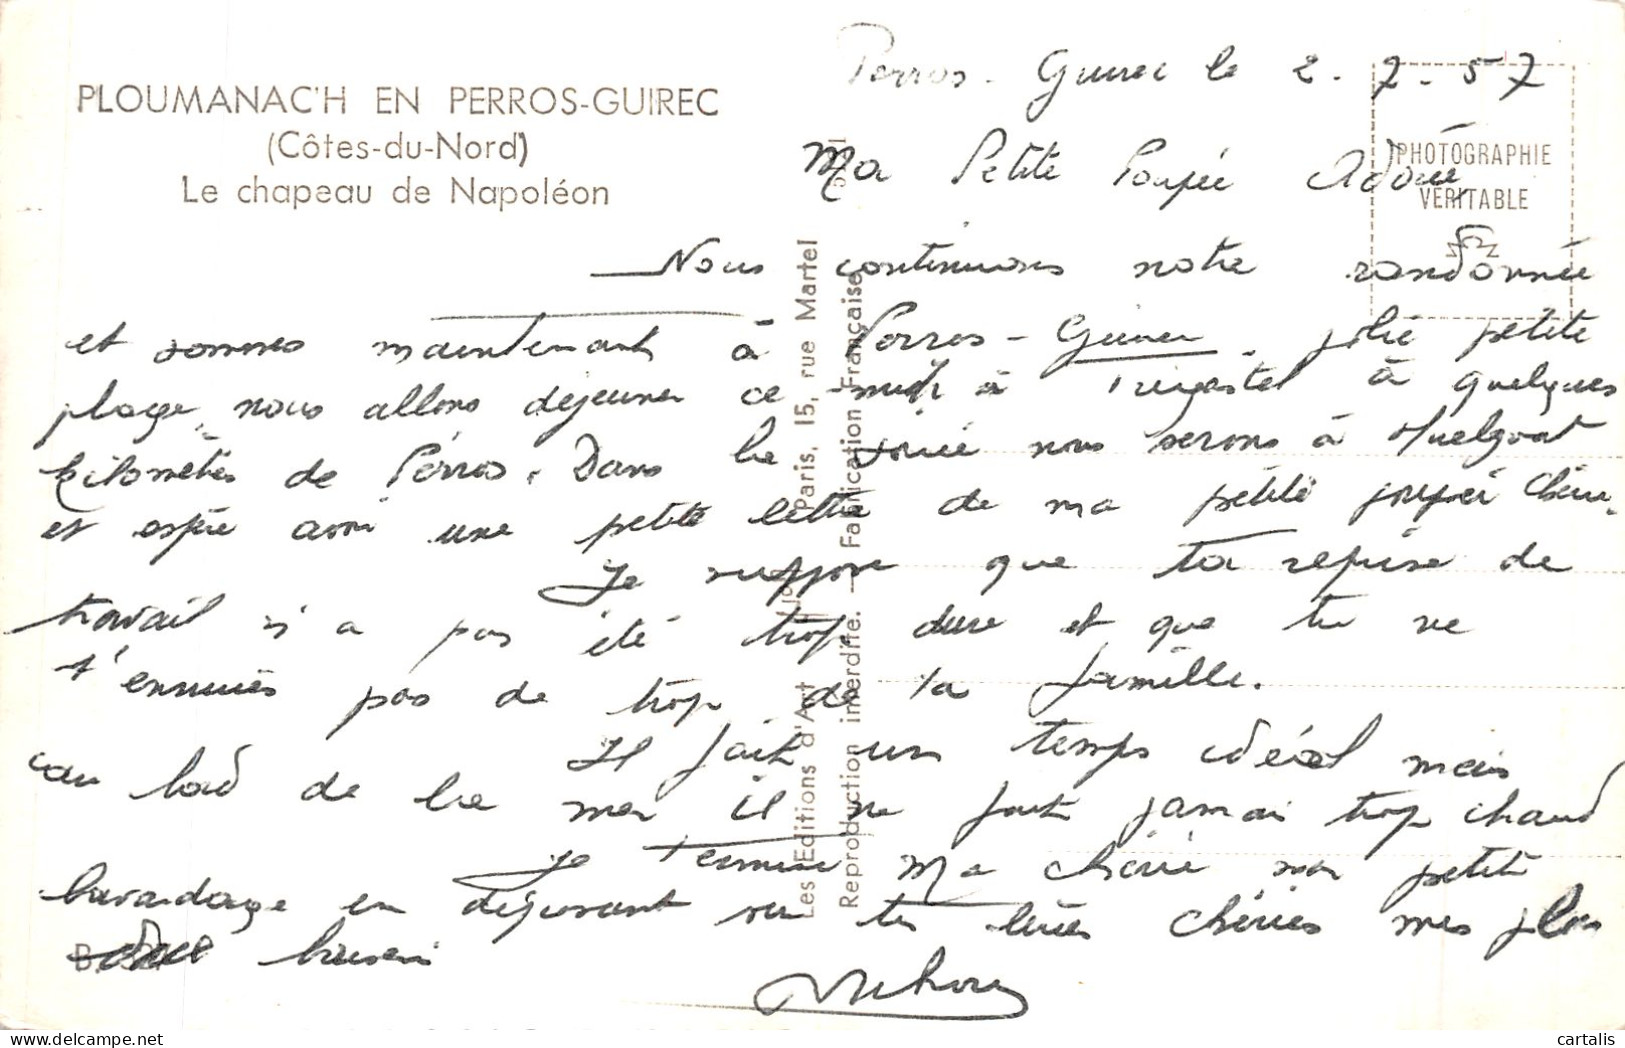 PLOUMANAC'H EN PERROS-GUIREC
(Côtes-du-Nord)
Le chapeau de Napoléon
Perros-Guirec le 2.7.57
PHOTOGRAPHIE
VÉRITABLE
Ma Petite Poupée Adorée
Nous continuons notre randonnée
et sommes maintenant à Perros-Guirec, jolie petite
plage, nous allons déjeuner ce midi à Trégastel à quelques
kilomètres de Perros. Dans la soirée nous serons à Huelgoat
et espère avoir une petite lettre de ma petite poupée chérie.
Je suppose que ta reprise de
travail n'a pas été trop dure et que tu ne
t'ennuies pas de trop de la famille.
Il fait un temps idéal mais
au bord de la mer il ne fait jamais trop chaud
Je termine Ma chérie mon petit
bavardage en déposant sur tes lèvres chéries mes plus
doux baisers
Les Editions d'Art Paris, 15, rue Martel
Reproduction interdite. — Fabrication Française
cartalis
delcampe.net